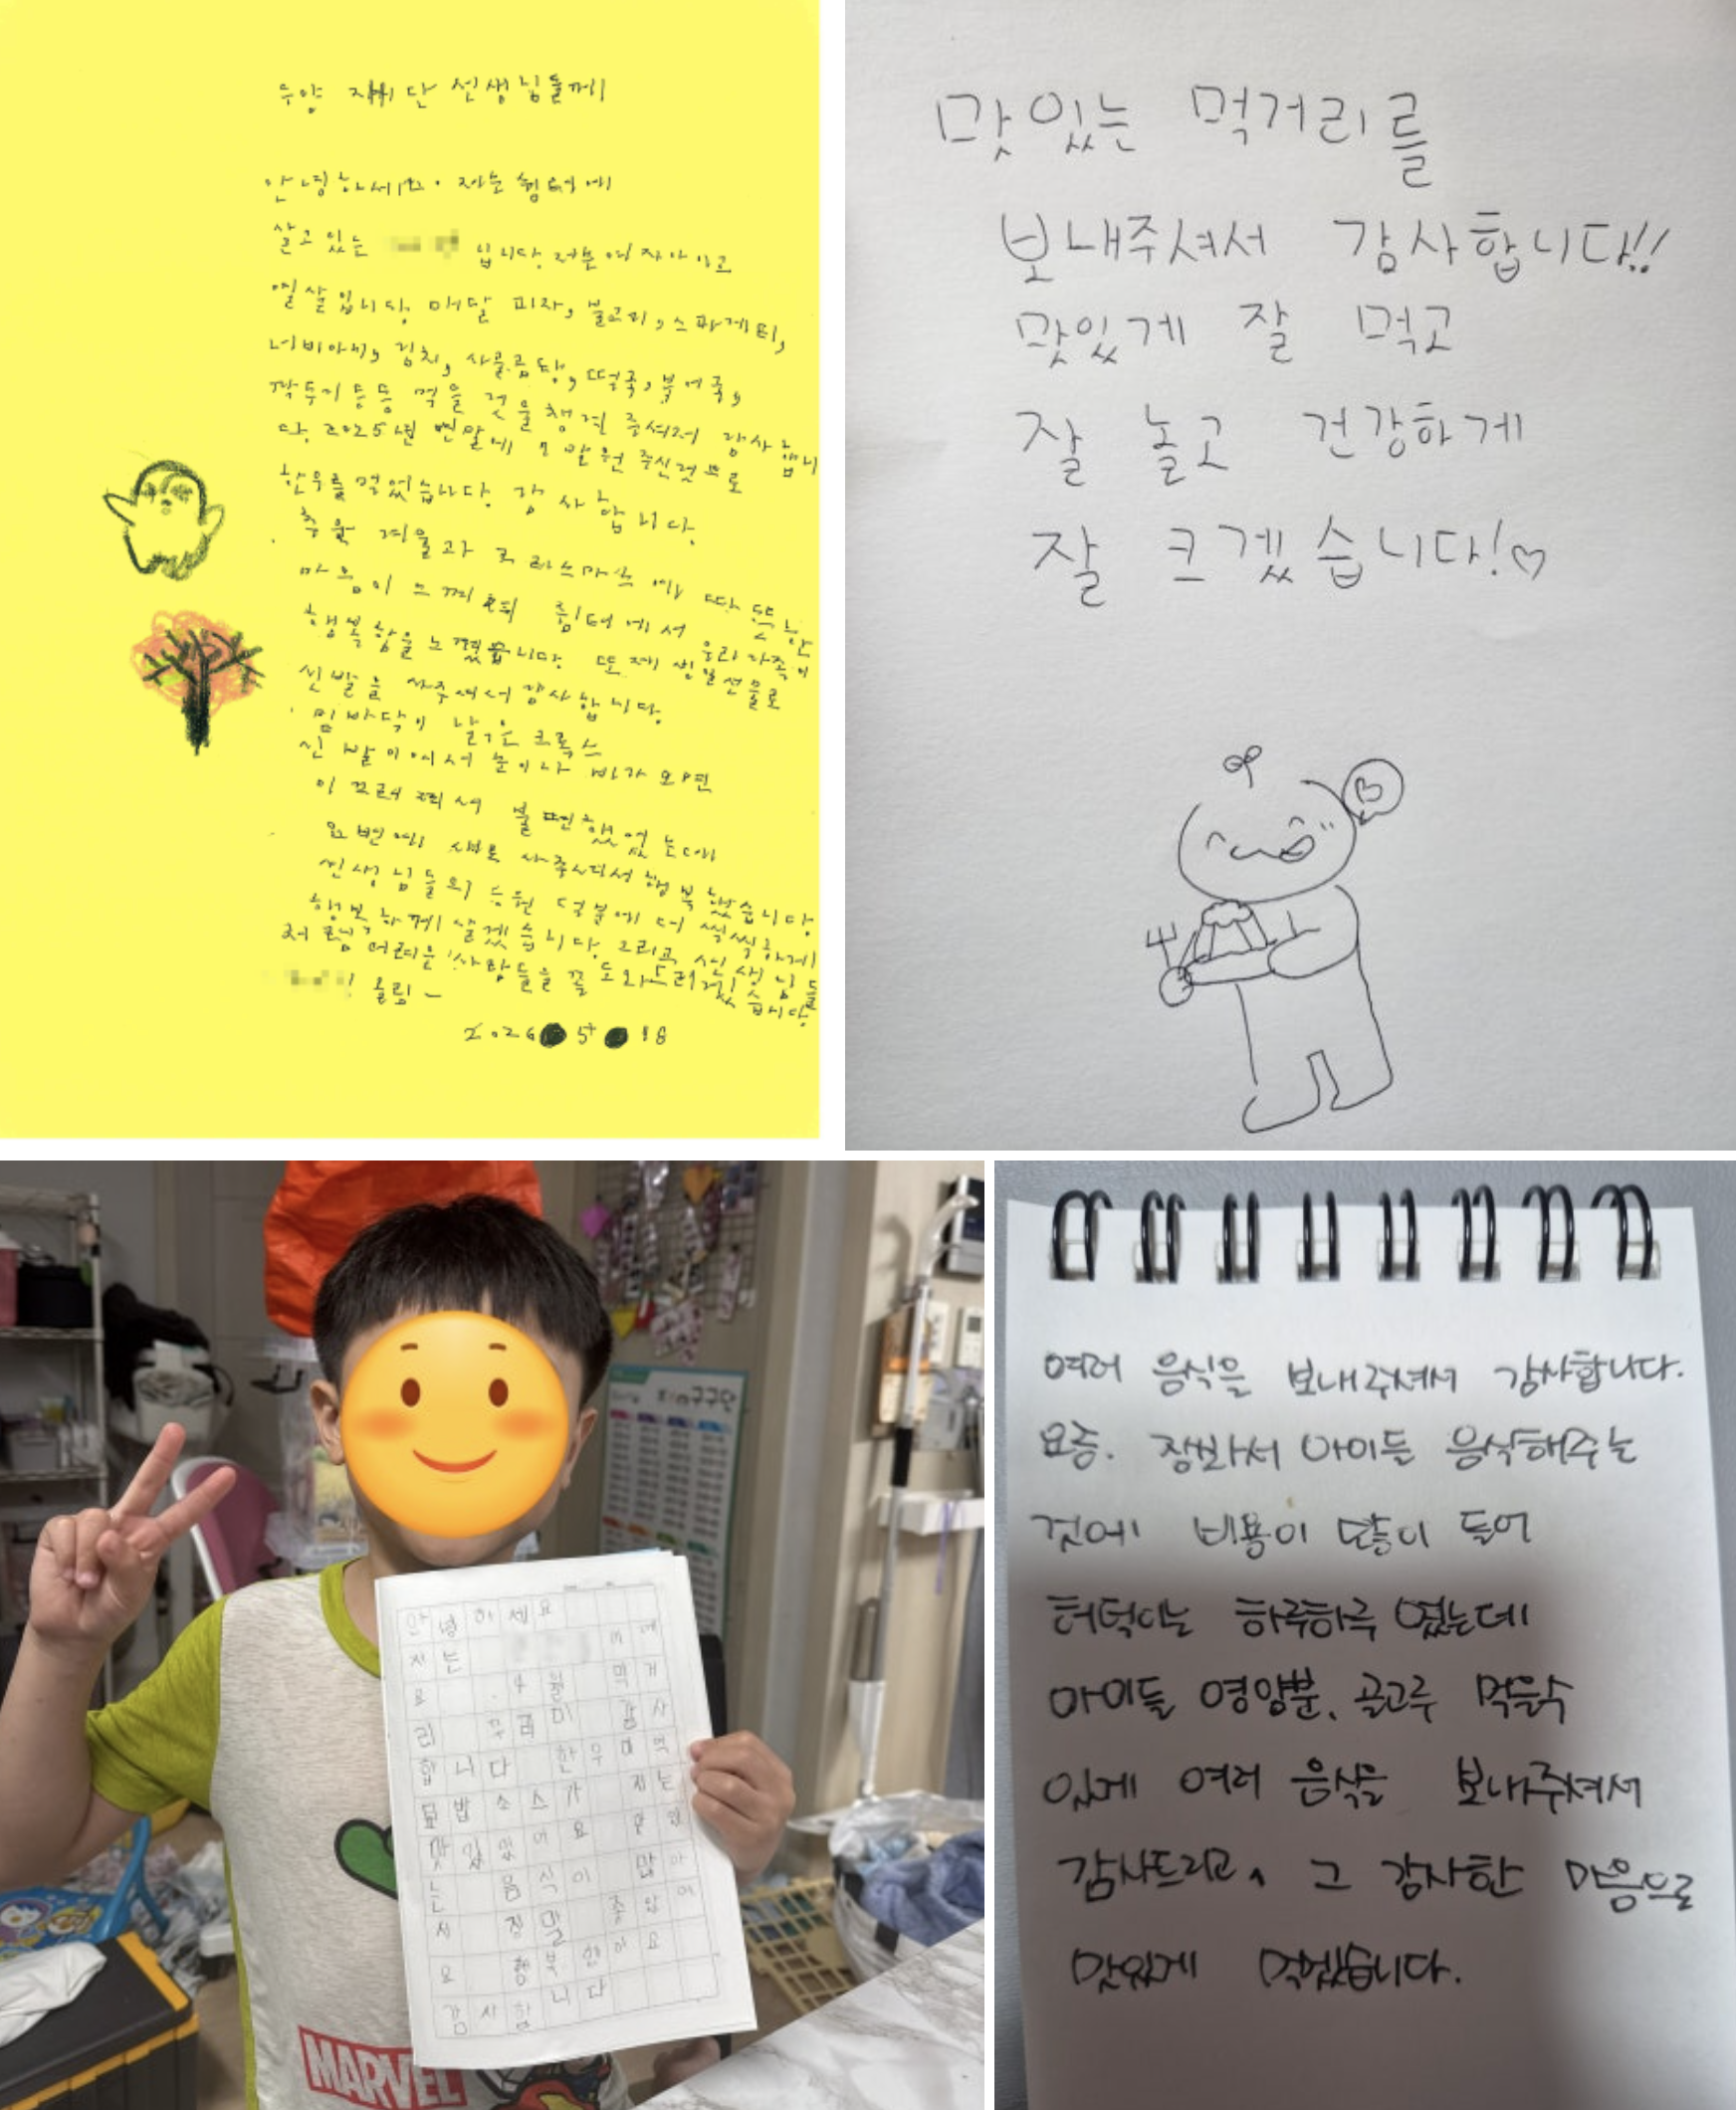 수양 재단 선생님들께
안녕하세요. 저는 쉼터에
살고 있는 입니다. 저는 여자아이고
열살입니다. 매달 피자, 불고기, 스파게티,
너비아니, 김치, 사골곰탕, 떡국, 북어국,
깍두기 등등 먹을 것을 챙겨 주셔서 감사합니
다. 2025년 연말에 만원 주신것으로
한우를 먹었습니다. 감사합니다.
추운 겨울과 크리스마스에 따뜻한
마음이 느껴져 쉼터에서 우리 가족이
행복함을 느꼈습니다. 또 제 생일선물로
신발을 사주셔서 감사합니다.
밑바닥이 낡은 크록스
신발이여서 눈이나 비가 오면
미끄러져서 불편했었는데
요번에 새로 사주셔서 행복했습니다
선생님들의 응원 덕분에 더 씩씩하게
행복하게 살겠습니다. 그리고 선생님들
처럼 어려운 사람들을 꼭 도와드리겠습니다.
올림
2026 5 18
맛있는 먹거리를
보내주셔서 감사합니다!!
맛있게 잘 먹고
잘 놀고 건강하게
잘 크겠습니다!♡
안녕하세요
저는 이에
요. 4월 먹거
리 꾸러미 감사
합니다 한우미역
덮밥소스가 저는
맛있었어요
는 음식이 많아
서 정말 좋았어
요 행복해요
감사합니다
MARVEL
구구단
여러 음식을 보내주셔서 감사합니다.
요즘. 장봐서 아이들 음식해주는
것에 비용이 많이 들어
허덕이는 하루하루 였는데
아이들 영양뿐. 골고루 먹을수
있게 여러 음식을 보내주셔서
감사드리고, 그 감사한 마음으로
맛있게 먹겠습니다.